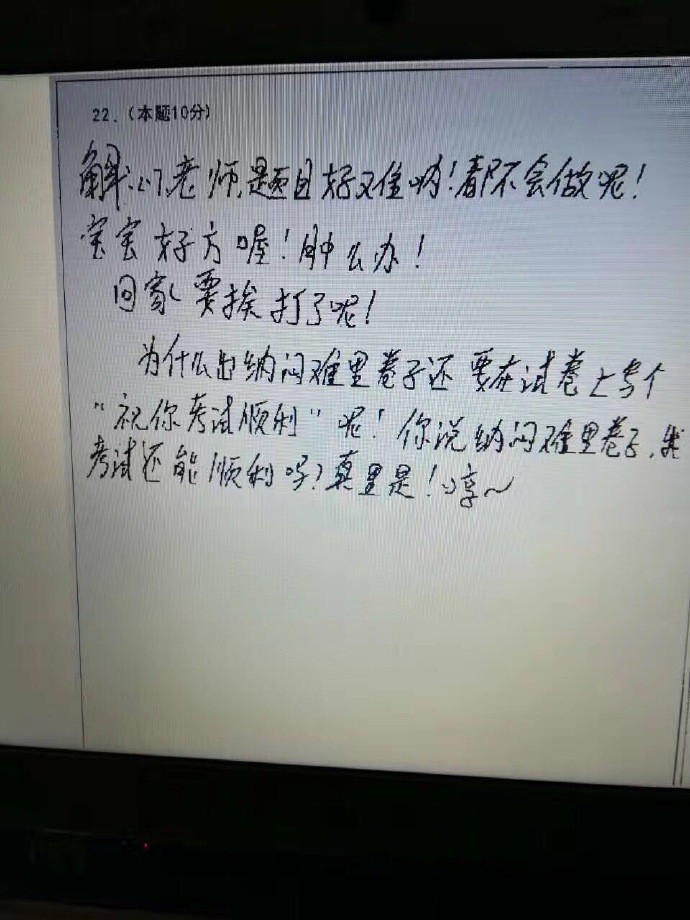 22.(本题10分)
解:(1)老师,题目好难哟!都不会做呢!
宝宝好方喔!肿么办!
回家要挨打了呢!
为什么出纳闷难里卷子还要在试卷上写个
"祝你考试顺利"呢!你说纳闷难里卷子,我
考试还能顺利吗?真里是!哼~